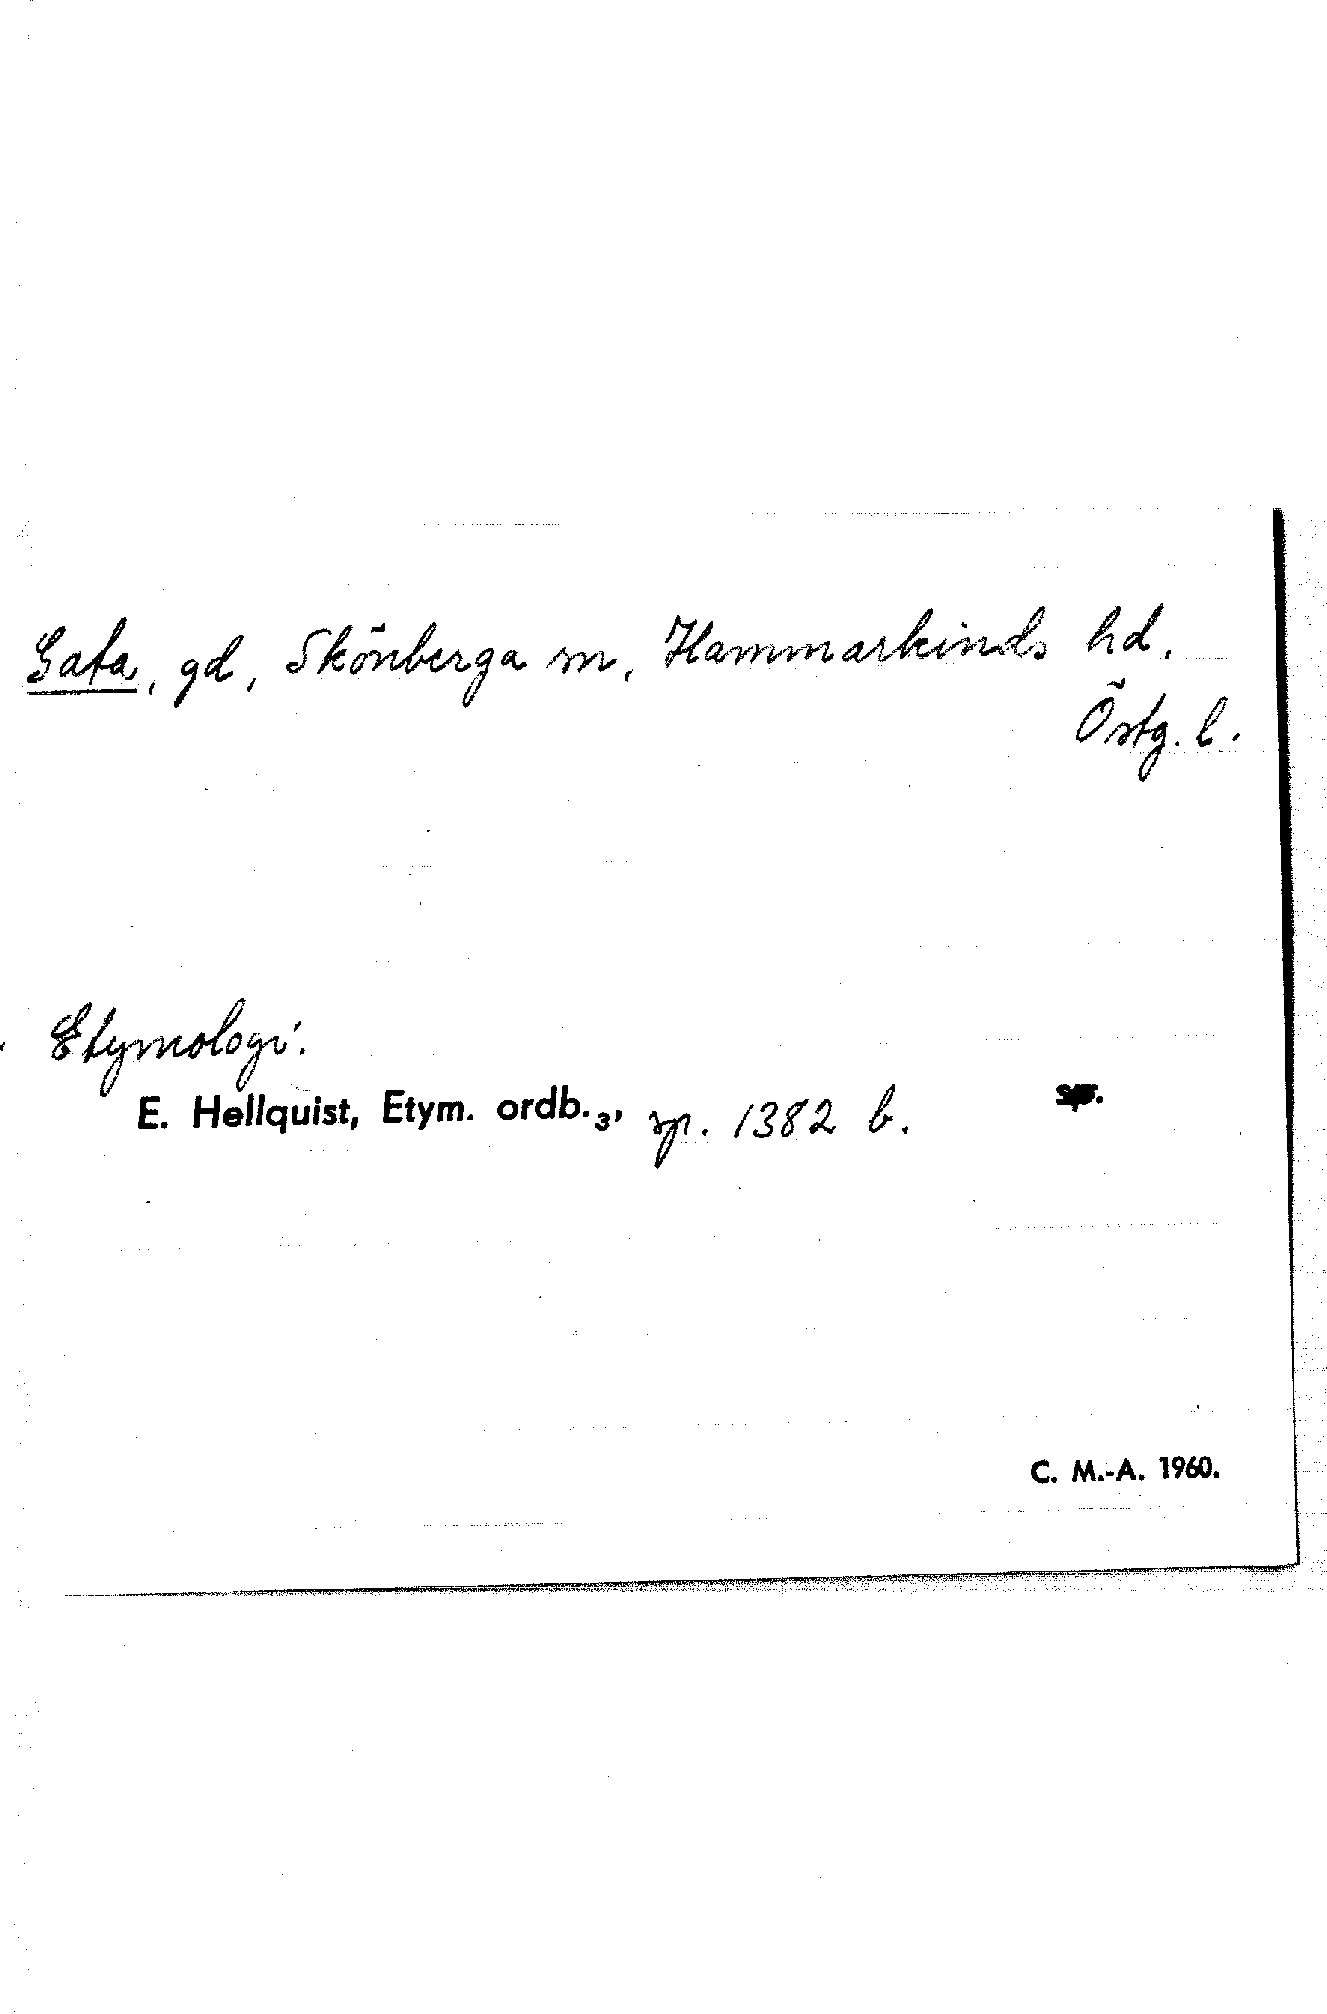 Gata, gd, Skönberga sn, Hammarkinds hd.
Östg. l.
Etymologi:
E. Hellquist, Etym. ordb.₃, sp. 1382 b.
C. M.-A. 1960.